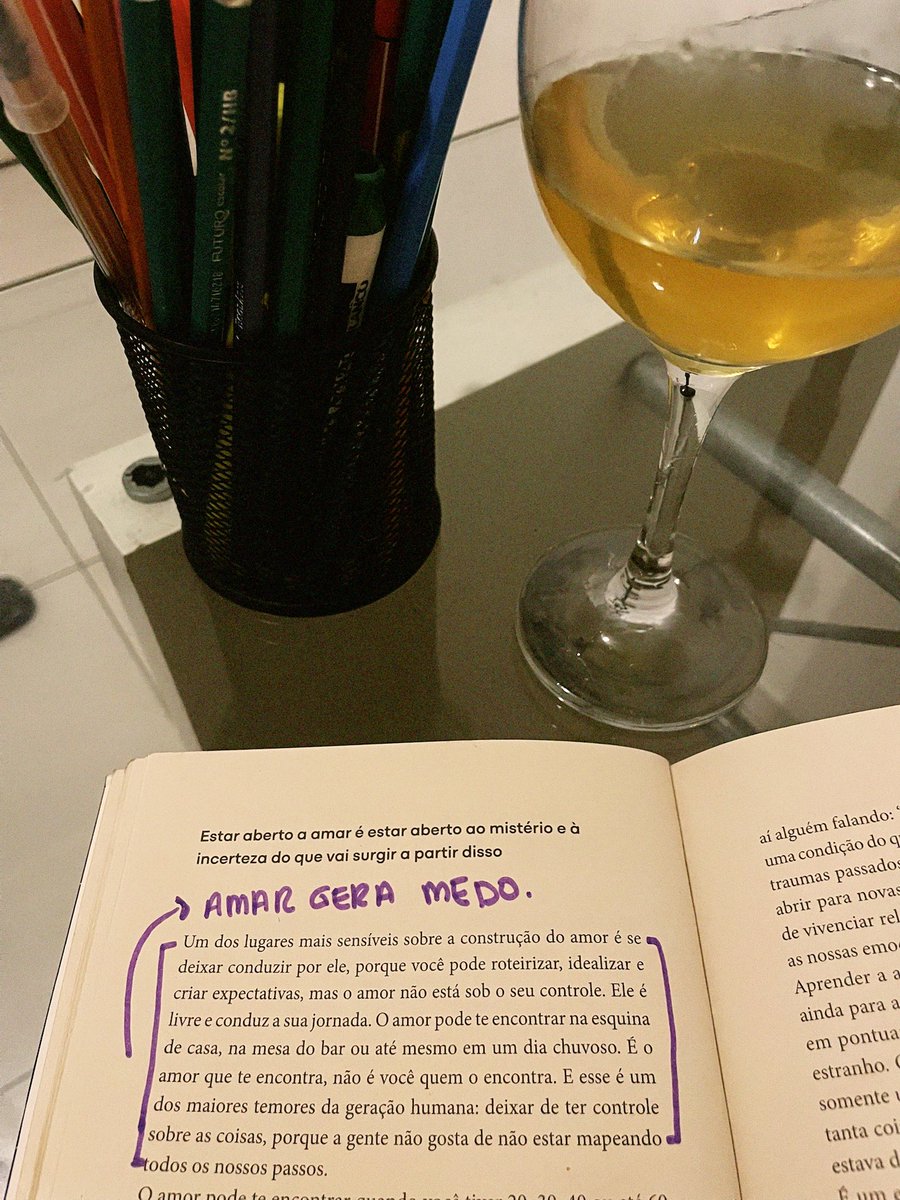 FUTURO Nº 2/HB
Estar aberto a amar é estar aberto ao mistério e à
incerteza do que vai surgir a partir disso
AMAR GERA MEDO.
Um dos lugares mais sensíveis sobre a construção do amor é se
deixar conduzir por ele, porque você pode roteirizar, idealizar e
criar expectativas, mas o amor não está sob o seu controle. Ele é
livre e conduz a sua jornada. O amor pode te encontrar na esquina
de casa, na mesa do bar ou até mesmo em um dia chuvoso. É o
amor que te encontra, não é você quem o encontra. E esse é um
dos maiores temores da geração humana: deixar de ter controle
sobre as coisas, porque a gente não gosta de não estar mapeando
todos os nossos passos.
O amor pode te encontrar quando você tiver 20, 30, 40 ou até 60
aí alguém falando:
uma condição do
traumas passados
abrir para novas
de vivenciar
as nossas
Aprender a
ainda para a
em
estranho.
somente
tanta
estava
É um